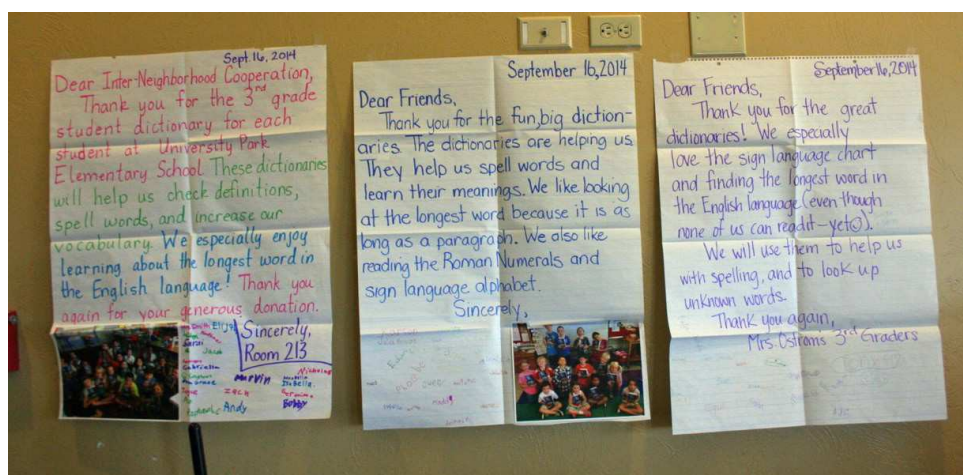 Sept. 16, 2014
Dear Inter-Neighborhood Cooperation,
Thank you for the 3rd grade
student dictionary for each
student at University Park
Elementary School. These dictionaries
will help us check definitions,
spell words, and increase our
vocabulary. We especially enjoy
learning about the longest word in
the English language! Thank you
again for your generous donation.
Sincerely,
Room 213
Marvin
Nicholas
Isabella
Zach
Andy
Bobby
September 16, 2014
Dear Friends,
Thank you for the fun, big diction-
aries. The dictionaries are helping us.
They help us spell words and
learn their meanings. We like looking
at the longest word because it is as
long as a paragraph. We also like
reading the Roman Numerals and
sign language alphabet.
Sincerely,
September 16, 2014
Dear Friends,
Thank you for the great
dictionaries! We especially
love the sign language chart
and finding the longest word in
the English language (even though
none of us can read it - yet☺).
We will use them to help us
with spelling, and to look up
unknown words.
Thank you again,
Mrs. Ostrom's 3rd Graders